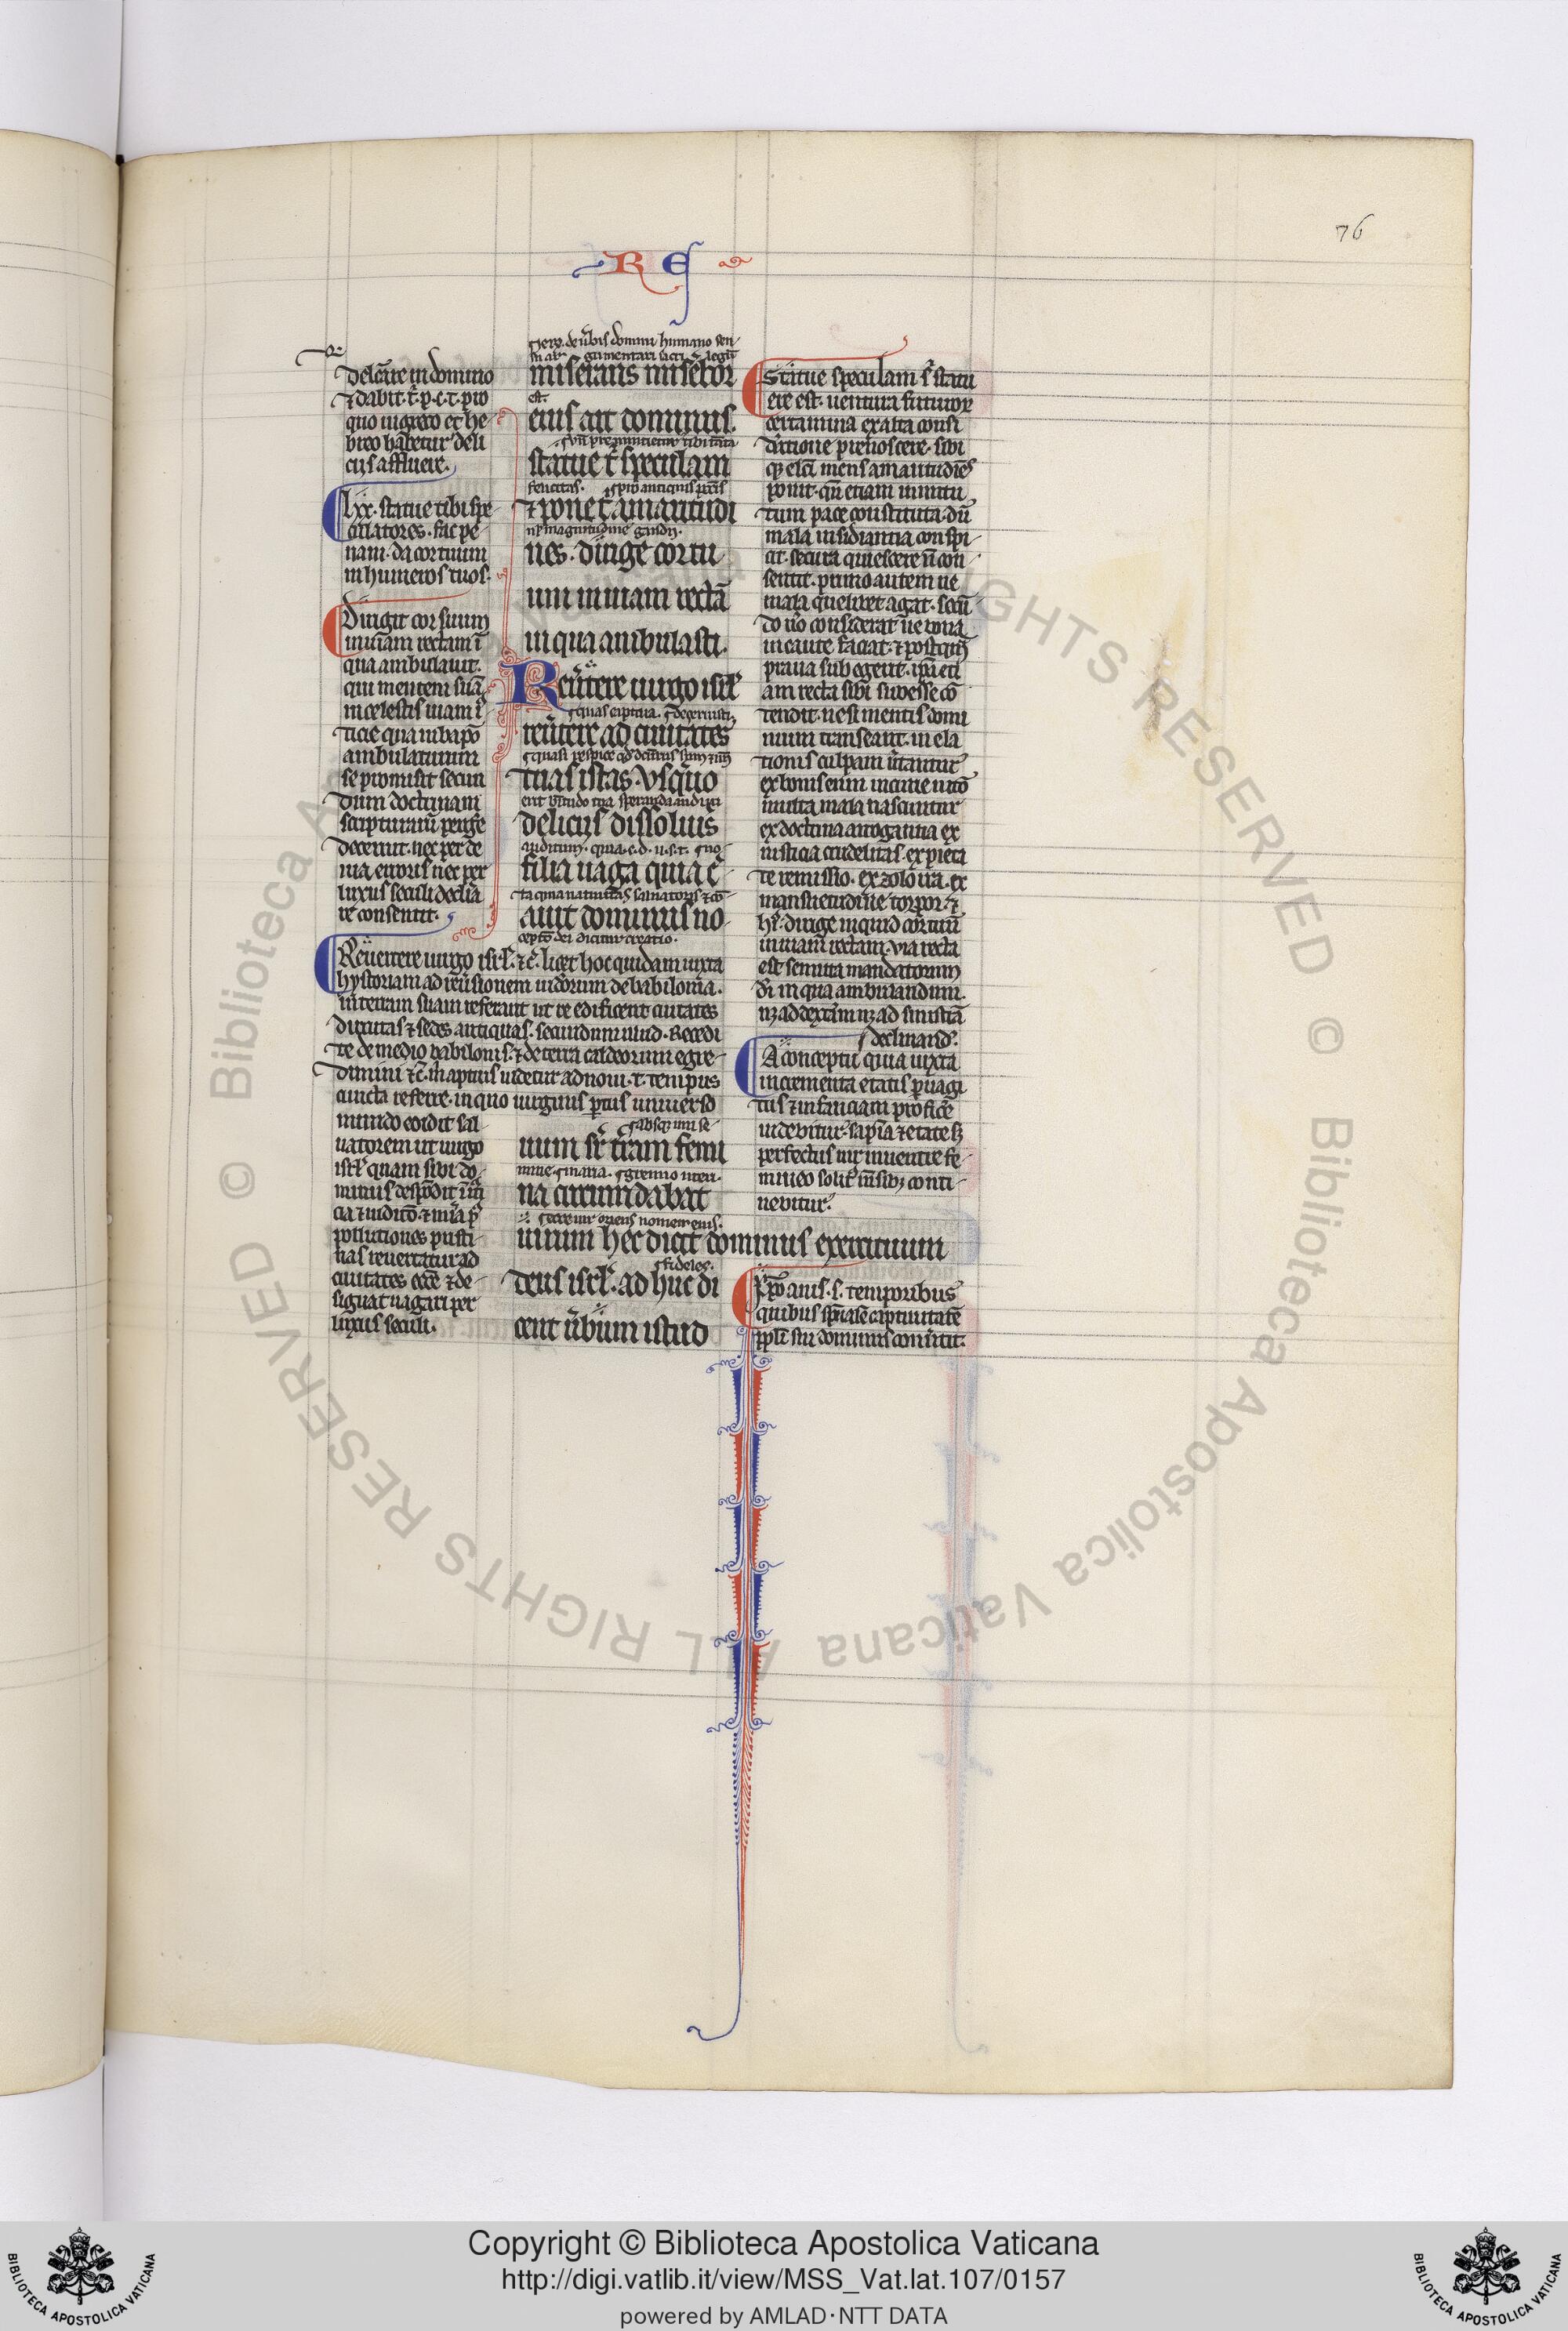 76
R E
delectare in domino
⁊ dabit. t̄. p. c. t. pro
quo in greco et he
breo habetur deli
cijs affluere.
lxx. statue tibi spe
culatores. fac pe
nam. da cor tuum
in humeros tuos.
Dirigit cor suum
in uiam rectam ī
qua ambulauit.
qui mentem suā
in celestis uiam iu
ticie qua in bapō
ambulaturum
se promisit secun
dum doctrinam
scripturarū perage
decreuit. nec per de
uia erroris nec per
luxus seculi declīa
re consentit.
Reuertere uirgo isrl. ⁊c̄. licet hoc quidam iuxta
hystoriam ad reūsionem iudeorum de babilonia.
in terram suam referant ut re edificent ciuitates
dirutas ⁊ sedes antiquas. secundum illud. Recedi
te de medio babilonis. ⁊ de terra caldeorum egre
dimini ⁊c̄. in aptius uidetur ad noui. t. tempus
cuncta referre. in quo uirginis partus uniuerso
mundo edidit sal
uatorem ut uirgo
isrl quam sibi do
minus despōdit ī iusti
cia ⁊ iudicō. ⁊ mīa p̄
pollutiones pristi
nas reuertatur ad
ciuitates eccē ⁊ de
signat uagari per
luxus seculi.
de ūbis domini humano sen
su argumentari sacrilegiū
miserans misebor
est.
eius ait dominus.
statue t̄ speculam
felicitas. pro antiquis
⁊ pone t̄. amaritudi
magnitudine gaudij.
nes. dirige cor tu
um in uiam rectā
in qua ambulasti.
Reūtere uirgo isrl
reūtere ad ciuitates
tuas istas. Vsquequo
delicijs dissolueris
filia uaga quia c
ta quia natiuitas saluatoris ⁊ cō
auit dominus no
ceptō dei dicitur creatio.
uum sr̄ t̄ram femi
mine. maria. gremio uteri.
na circumdabat
ecce uir oriens nomen eius.
uirum hec dicit dominus exercituum
fideles.
deus isrl. ad huc di
cent ūbum istud
Statue speculam s. statu
ere est. uentura futurorum
certamina exalta consi
deratione prenoscere. sibi
quisque electa mens amaritudīes
ponit. qn̄ etiam in uirtu
tum pace constituta. dū
mala insidiantia conspi
cit. secura quiescere n̄ con
sentit. primo autem ne
mala quelibet agat. secū
do ūo considerat ne bona
incaute faciat. ⁊ postquam
praua subegerit. ipa eti
am recta sibi subesse cō
tendit. ne si mentis domi
nium transeant. in ela
tionis culpam ūtantur
ex bonis enim incurie uitō
multa mala nascuntur
ex doctrina arrogantia ex
iusticia crudelitas. ex pieta
te remissio. ex zolo ira. ex
mansuetudine torpor. ⁊
hr̄. dirige inquid cor tuū
in uiam rectam. uia recta
est semita mandatorum
dī in qua ambulandum.
nec ad dexteram nec ad sinistrā
declinand.
A conceptu quia iuxta
incrementa etatis p uagi
tus ⁊ infanciam proficē
uidebitur. sapīa ⁊ etate sed
perfectus uir in uentre fe
mineo solit mēsibus conti
nebitur.
Pro anis. s. temporibus
quibus spualē captiuitatē
ppli sui dominus conūtit.
Copyright © Biblioteca Apostolica Vaticana
http://digi.vatlib.it/view/MSS_Vat.lat.107/0157
powered by AMLAD·NTT DATA
BIBLIOTECA APOSTOLICA VATICANA
BIBLIOTECA APOSTOLICA VATICANA
© Biblioteca Apostolica Vaticana ALL RIGHTS RESERVED © Biblioteca Apostolica Vaticana ALL RIGHTS RESERVED